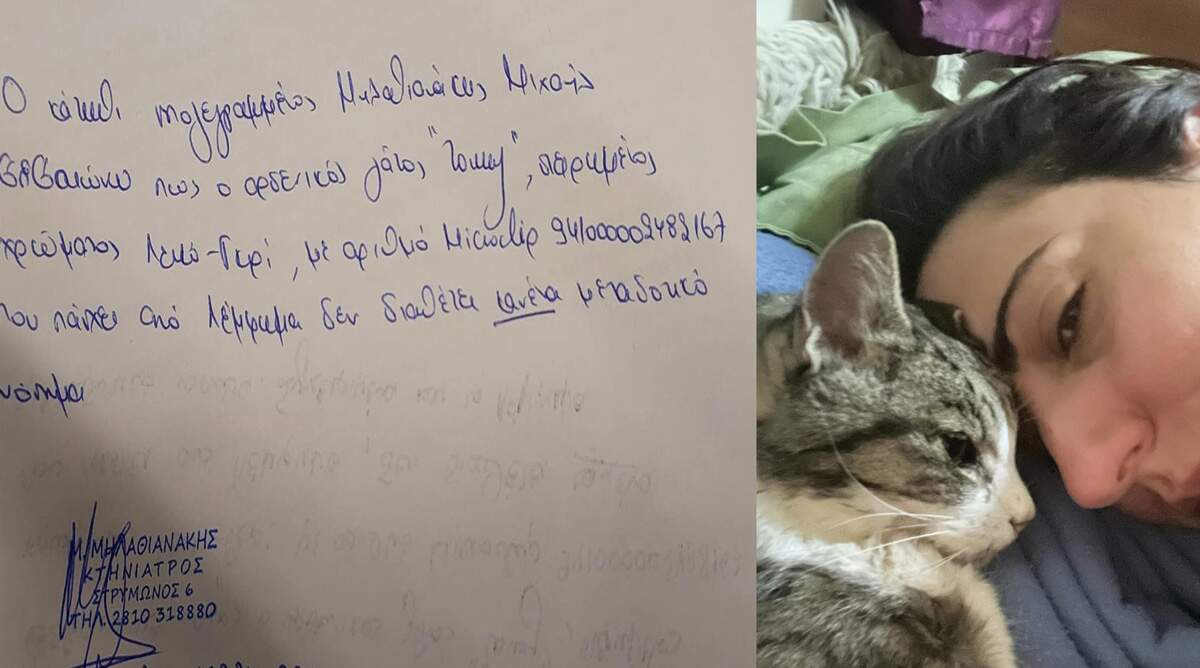 Ο κάτωθι υπογεγραμμένος Μηλαθιανάκης Μιχαήλ
βεβαιώνω πως ο αρσενικός γάτος "Tommy", στειρωμένος
χρώματος Λευκό-Γκρί, με αριθμό Microchip 941000002482167
που πάσχει από λέμφωμα δεν διαθέτει κανένα μεταδοτικό
νόσημα
Μ. ΜΗΛΑΘΙΑΝΑΚΗΣ
ΚΤΗΝΙΑΤΡΟΣ
ΣΤΡΥΜΩΝΟΣ 6
ΤΗΛ. 2810 318880